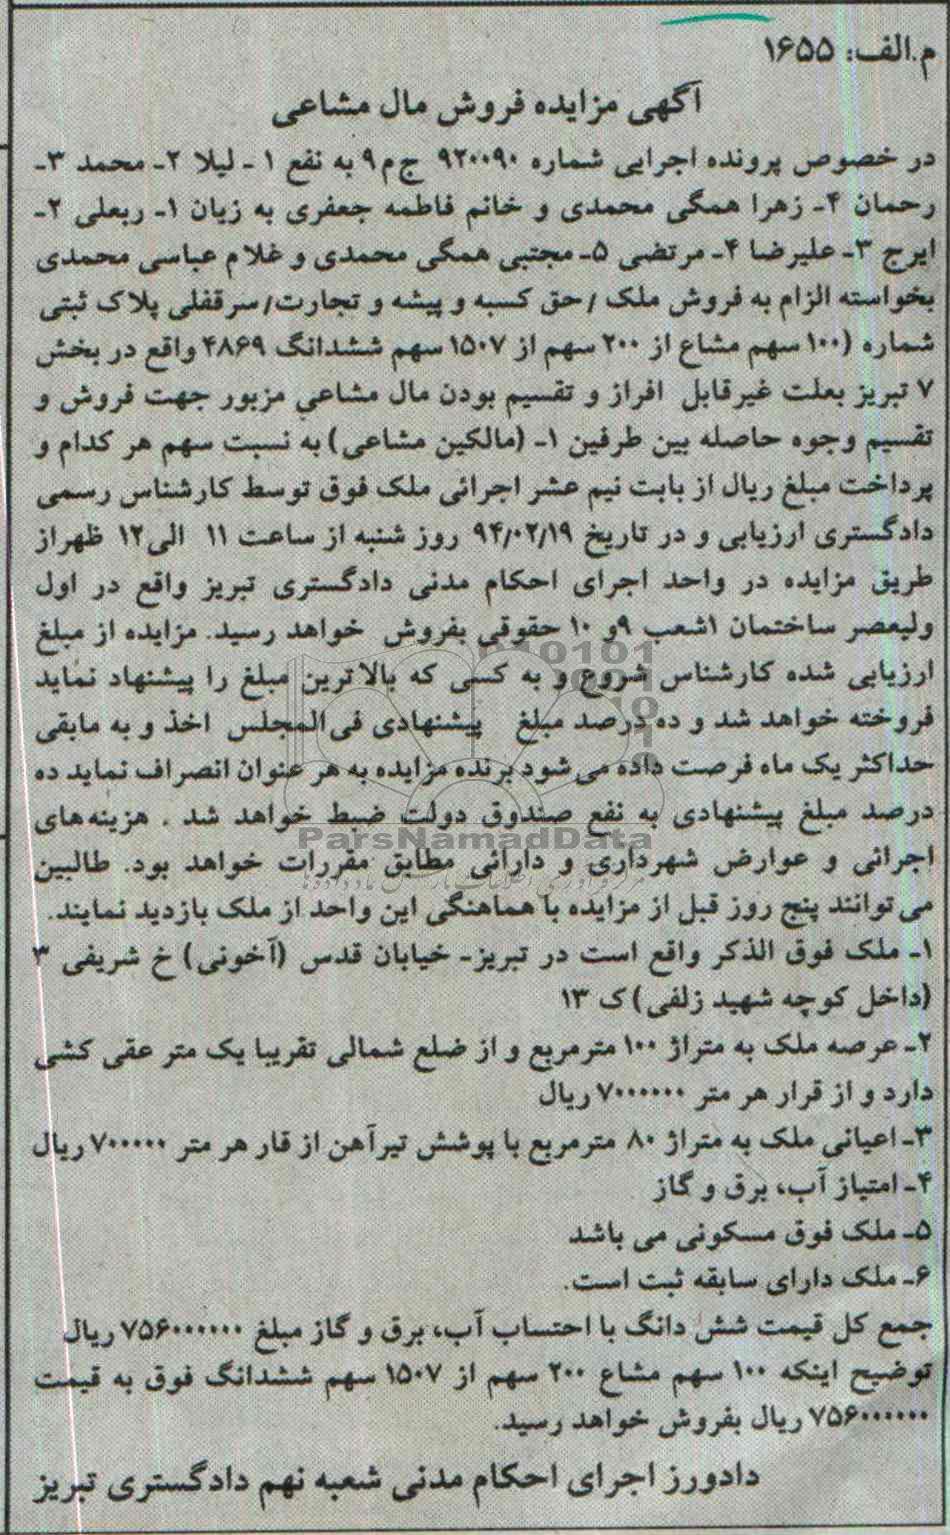 م.الف: ۱۶۵۵
آگهی مزایده فروش مال مشاعی
در خصوص پرونده اجرایی شماره ۹۲۰۰۹۰ ج م ۹ به نفع ۱ - لیلا ۲- محمد ۳-
رحمان ۴- زهرا همگی محمدی و خانم فاطمه جعفری به زیان ۱- ربعلی ۲-
ایرج ۳- علیرضا ۴- مرتضی ۵- مجتبی همگی محمدی و غلام عباسی محمدی
بخواسته الزام به فروش ملک /حق کسبه و پیشه و تجارت/سرقفلی پلاک ثبتی
شماره (۱۰۰ سهم مشاع از ۲۰۰ سهم از ۱۵۰۷ سهم ششدانگ ۴۸۶۹ واقع در بخش
۷ تبریز بعلت غیرقابل افراز و تقسیم بودن مال مشاعی مزبور جهت فروش و
تقسیم وجوه حاصله بین طرفین ۱- (مالکین مشاعی) به نسبت سهم هر کدام و
پرداخت مبلغ ریال از بابت نیم عشر اجرائی ملک فوق توسط کارشناس رسمی
دادگستری ارزیابی و در تاریخ ۹۴/۰۲/۱۹ روز شنبه از ساعت ۱۱ الی۱۲ ظهراز
طریق مزایده در واحد اجرای احکام مدنی دادگستری تبریز واقع در اول
ولیعصر ساختمان ۱شعب ۹و ۱۰ حقوقی بفروش خواهد رسید. مزایده از مبلغ
ارزیابی شده کارشناس شروع و به کسی که بالاترین مبلغ را پیشنهاد نماید
فروخته خواهد شد و ده درصد مبلغ پیشنهادی فی‌المجلس اخذ و به مابقی
حداکثر یک ماه فرصت داده می‌شود برنده مزایده به هر عنوان انصراف نماید ده
درصد مبلغ پیشنهادی به نفع صندوق دولت ضبط خواهد شد . هزینه‌های
ParsNamadData
اجرائی و عوارض شهرداری و دارائی مطابق مقررات خواهد بود. طالبین
می‌توانند پنج روز قبل از مزایده با هماهنگی این واحد از ملک بازدید نمایند.
۱- ملک فوق الذکر واقع است در تبریز- خیابان قدس (آخونی) خ شریفی ۳
(داخل کوچه شهید زلفی) ک ۱۳
۲- عرصه ملک به متراژ ۱۰۰ مترمربع و از ضلع شمالی تقریبا یک متر عقی کشی
دارد و از قرار هر متر ۷۰۰۰۰۰۰ ریال
۳- اعیانی ملک به متراژ ۸۰ مترمربع با پوشش تیرآهن از قار هر متر ۷۰۰۰۰۰ ریال
۴- امتیاز آب، برق و گاز
۵- ملک فوق مسکونی می باشد
۶- ملک دارای سابقه ثبت است.
جمع کل قیمت شش دانگ با احتساب آب، برق و گاز مبلغ ۷۵۶۰۰۰۰۰۰ ریال
توضیح اینکه ۱۰۰ سهم مشاع ۲۰۰ سهم از ۱۵۰۷ سهم ششدانگ فوق به قیمت
۷۵۶۰۰۰۰۰۰ ریال بفروش خواهد رسید.
دادورز اجرای احکام مدنی شعبه نهم دادگستری تبریز